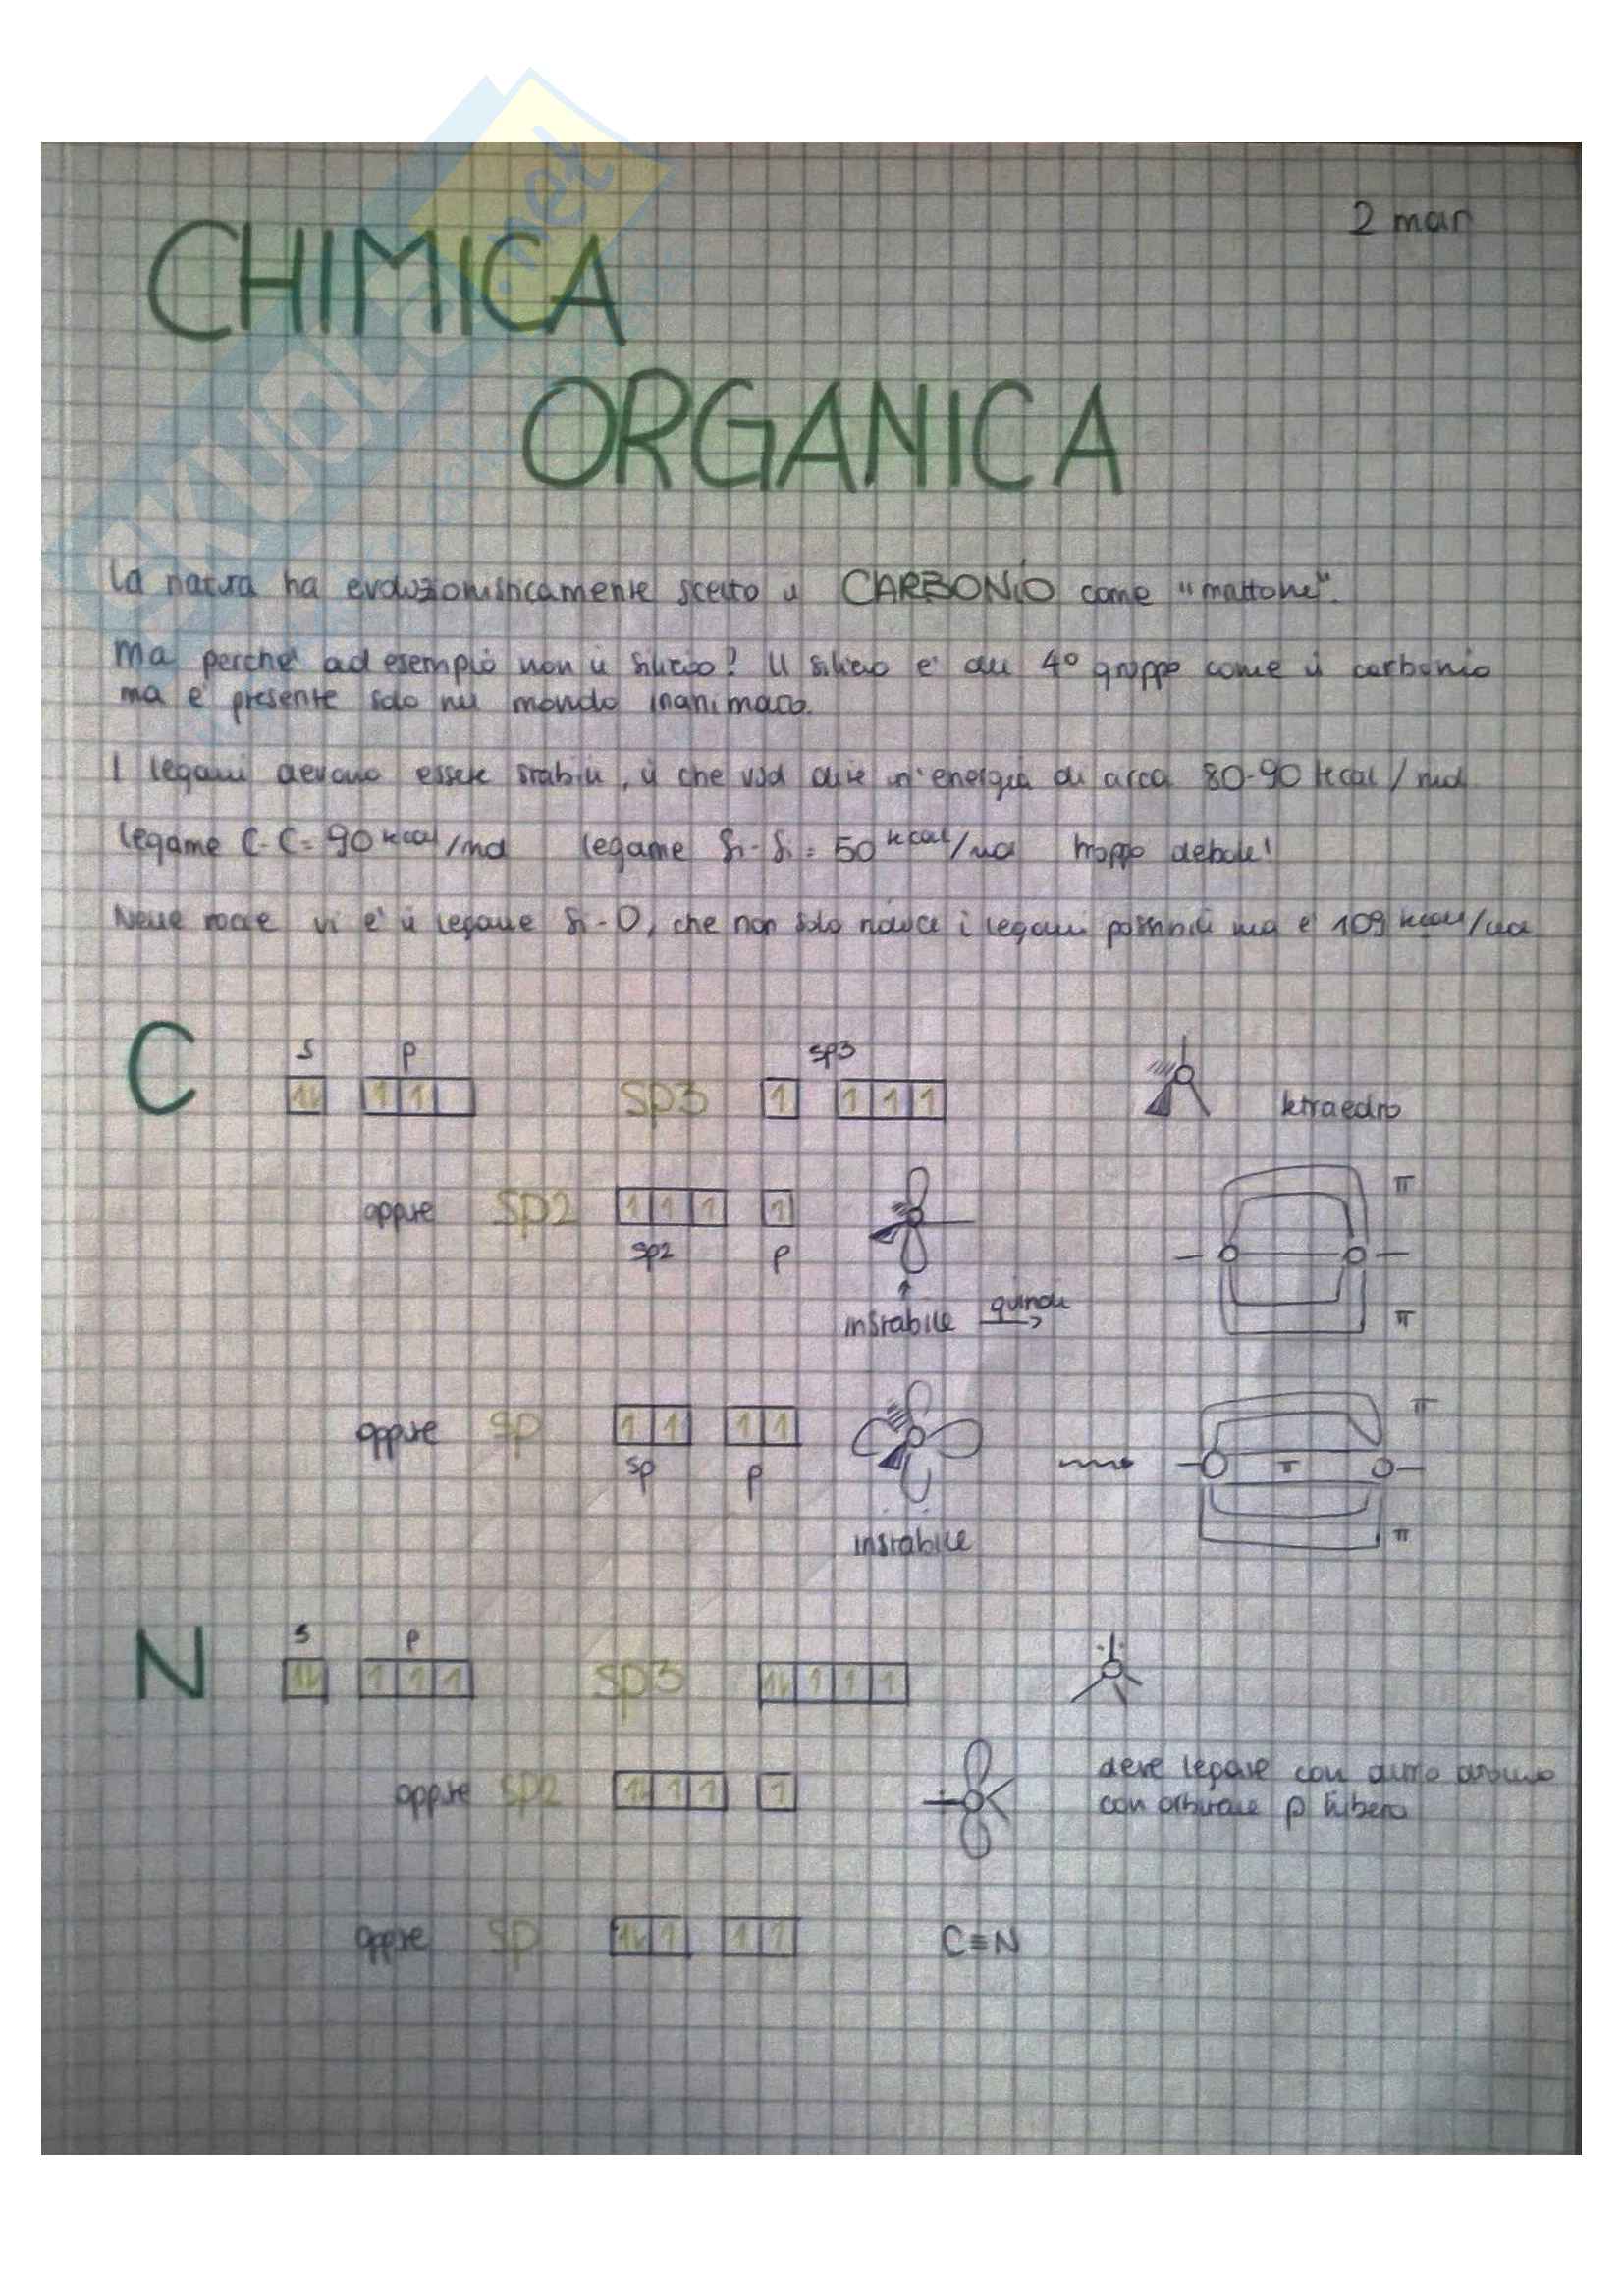 2 mar
CHIMICA
ORGANICA
La natura ha evoluzionisticamente scelto il CARBONIO come "mattone".
Ma perché ad esempio non il silicio? Il silicio è del 4° gruppo come il carbonio
ma è presente solo nel mondo inanimato.
I legami devono essere stabili, il che vuol dire un'energia di circa 80-90 kcal/mol
legame C-C = 90 kcal/mol legame Si-Si = 50 kcal/mol troppo debole!
Nelle rocce vi è il legame Si-O, che non solo riduce i legami possibili ma è 109 kcal/mol
C s p sp3 sp3 tetraedro
1↓ 1 1 1 1 1 1
oppure sp2 1 1 1 1 π
sp2 p
instabile quindi π
oppure sp 1 1 1 1 π
sp p π
instabile π
N s p sp3
1↓ 1 1 1 1↓ 1 1 1
oppure sp2 1↓ 1 1 1 deve legare con altro atomo
con orbitale p libero
oppure sp 1↓ 1 1 1 C≡N
SKUOLA.net